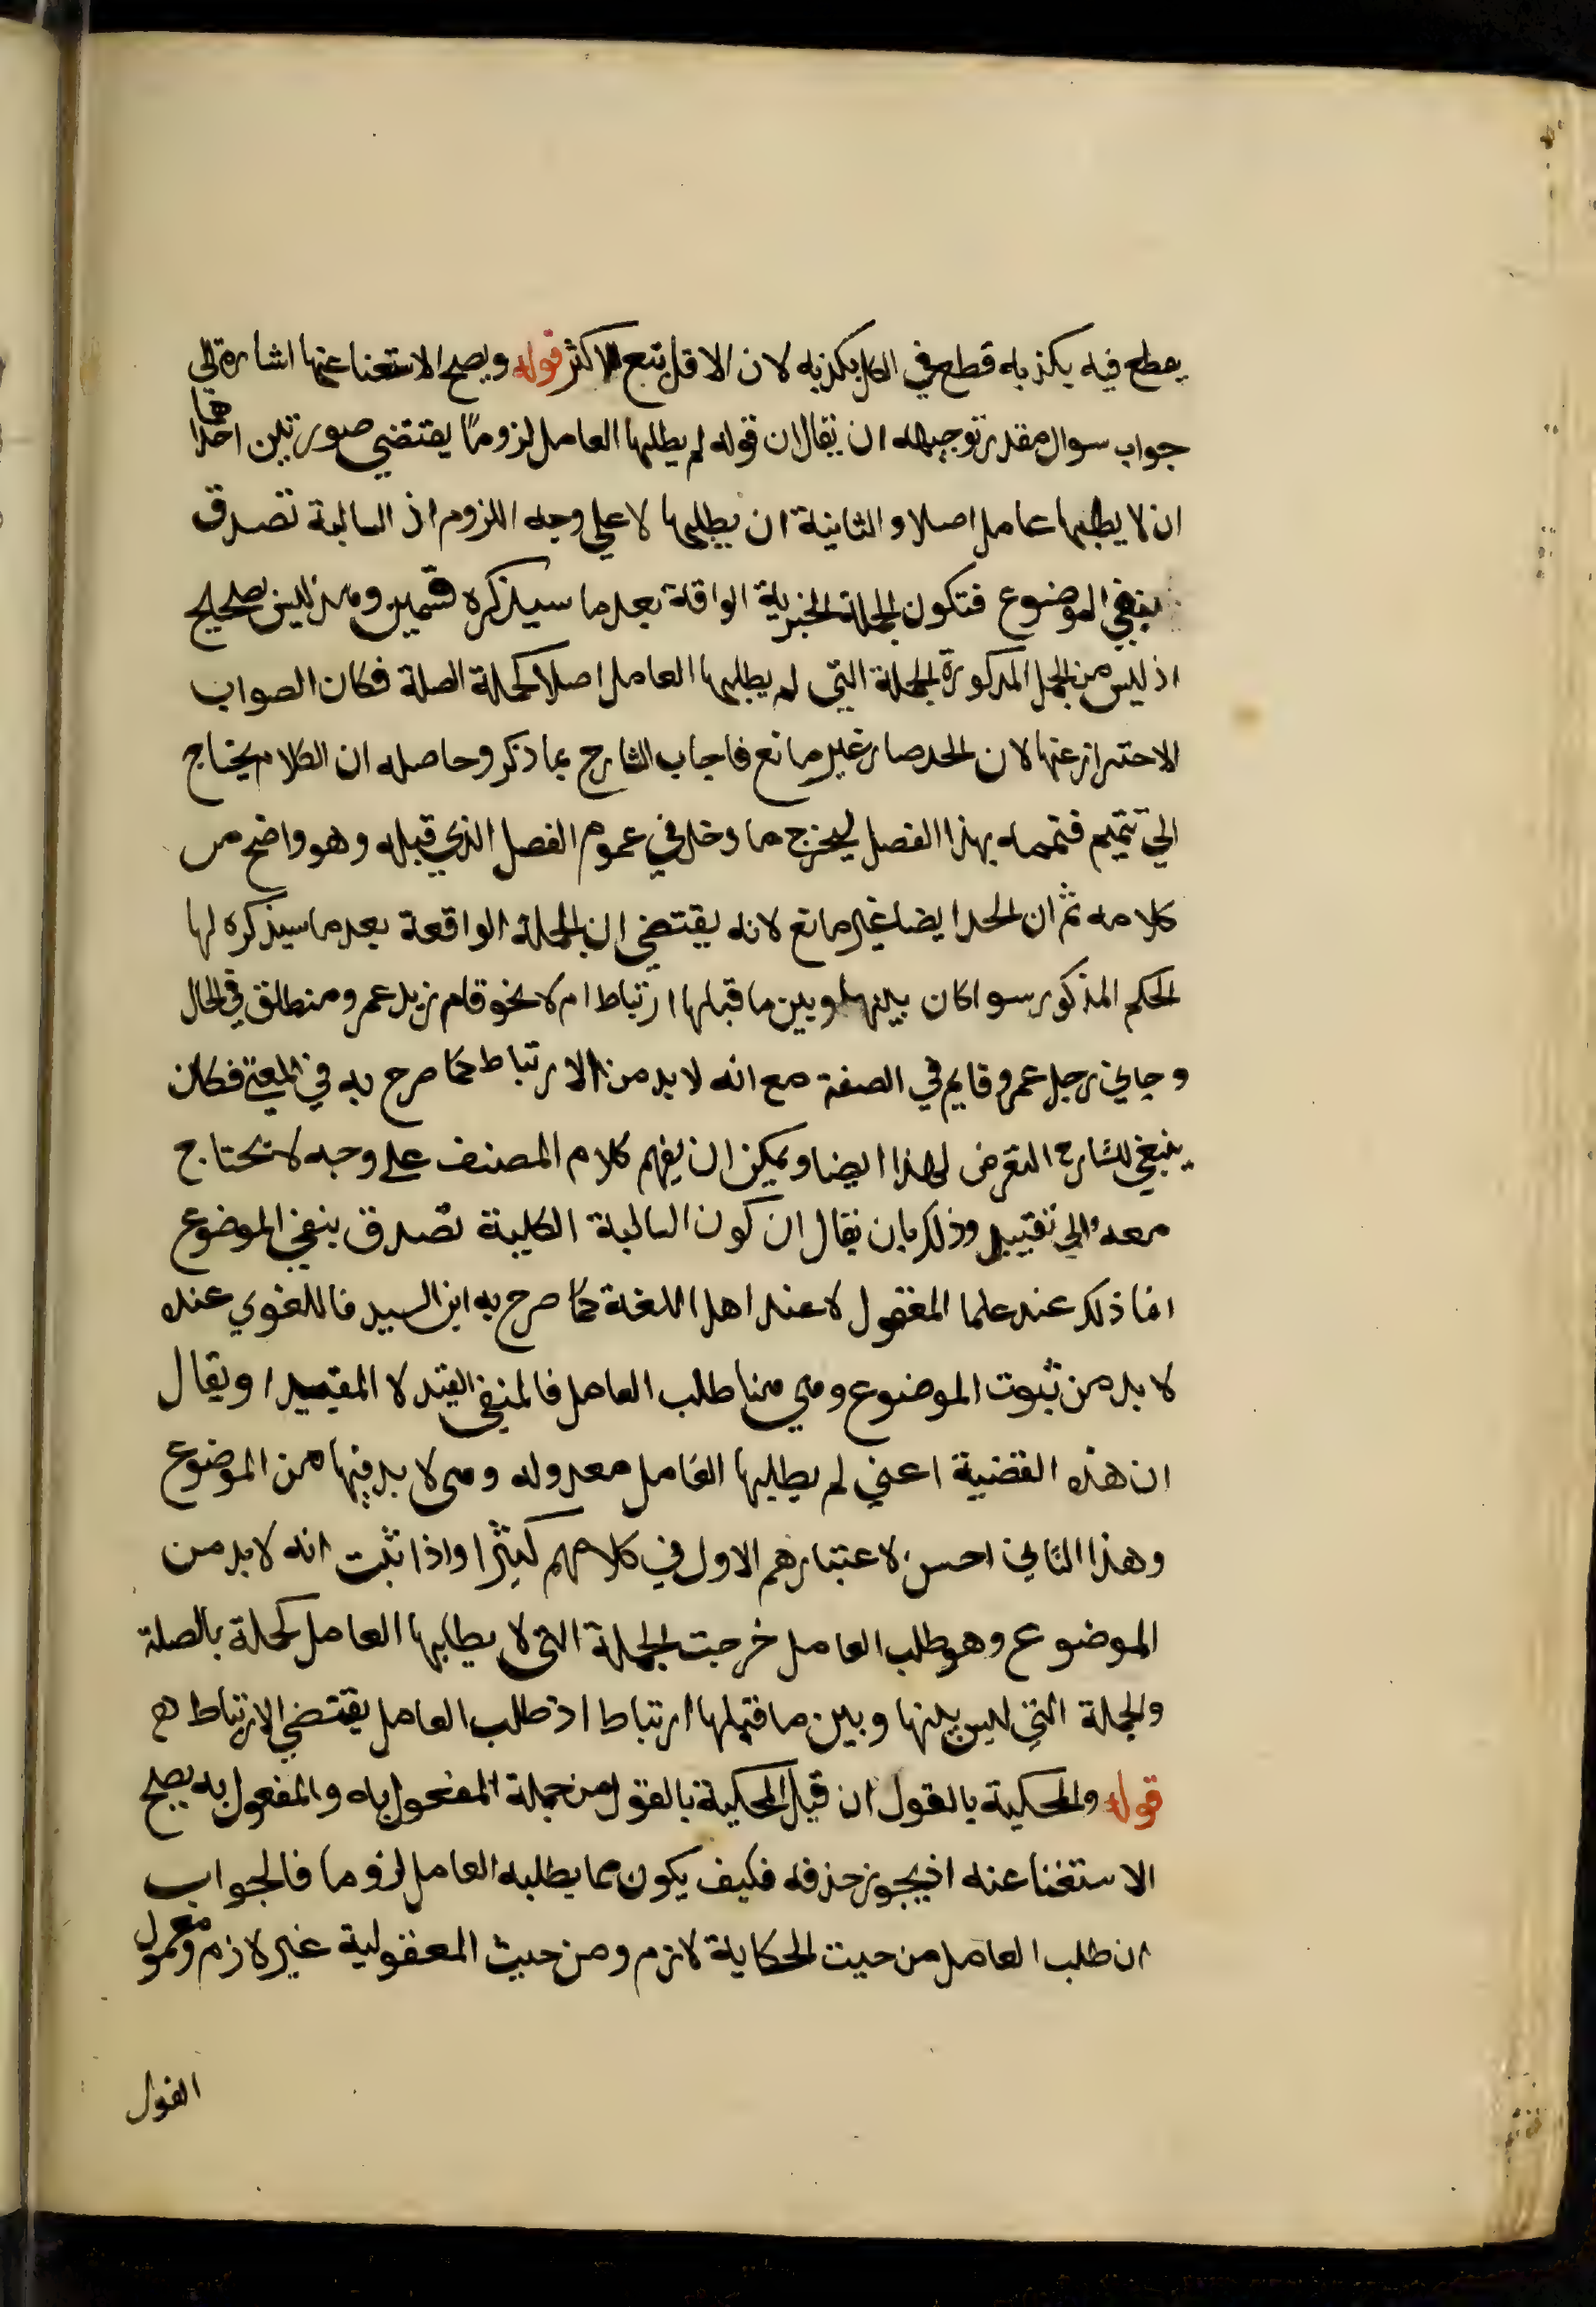 يعطع فيه يكذبه قطع في الكل يكذبه لان الاقل يتبع الاكثر قوله ويصح الاستغنا عنها اشارة الى
جواب سوال مقدر توجيهه ان يقال ان قوله لم يطلبها العامل لزوما يقتضي صورتين احداهما
ان لا يطلبها عامل اصلا والثانية ان يطلبها لا علي وجه اللزوم اذ السالبة تصدق
بنفي الموضوع فتكون الجملة الخبرية الواقة بعد ما سيذكره قسمين وهذ ليس بصحيح
اذ ليس من الجمل المذكورة الجملة التي لم يطلبها العامل اصلا كجملة الصلة فكان الصواب
الاحتراز عنها لان الحد صار غير مانع فاجاب الشارح بما ذكر وحاصله ان الكلام يحتاج
الي تتميم فتممه بهذا الفصل ليخرج ما دخل في عموم الفصل الذي قبله وهو واضح من
كلامه ثم ان الحد ايضا غير مانع لانه يقتضي ان الجملة الواقعة بعد ما سيذكره لها
الحكم المذكور سوا كان بينها وبين ما قبلها ارتباط ام لا نحو قام زيد عمرو منطلق في الحال
وجاني رجل عمرو قايم في الصفة مع انه لا بد من الارتباط كما صرح به في المغني فكان
ينبغي للشارح التعرض لهذا ايضا ويمكن ان يفهم كلام المصنف علي وجه لا يحتاج
معه الي تقييد وذلك بان يقال ان كون السالبة الكلية تصدق بنفي الموضوع
انما ذلك عند علما المعقول لا عند اهل اللغة كما صرح به ابن السيد فاللغوي عنده
لا بد من ثبوت الموضوع وهي هنا طلب العامل فالمنفي القيد لا المقيد او يقال
ان هذه القضية اعني لم يطلبها العامل معدوله وهي لا بد فيها من الموضوع
وهذا الثاني احسن لاعتبارهم الاول في كلامهم كثيرا واذا ثبت انه لا بد من
الموضوع وهو طلب العامل خرجت الجملة التي لا يطلبها العامل كجملة بالصلة
والجملة التي ليس بينها وبين ما قبلها ارتباط اذ طلب العامل يقتضي الارتباط
قوله والمحكية بالقول ان قيل المحكية بالقول من جملة المفعول به والمفعول به يصح
الاستغنا عنه اذ يجوز حذفه فكيف يكون مما يطلبه العامل لزوما فالجواب
ان طلب العامل من حيث الحكاية لازم ومن حيث المعفولية غير لازم ومعمول
القول